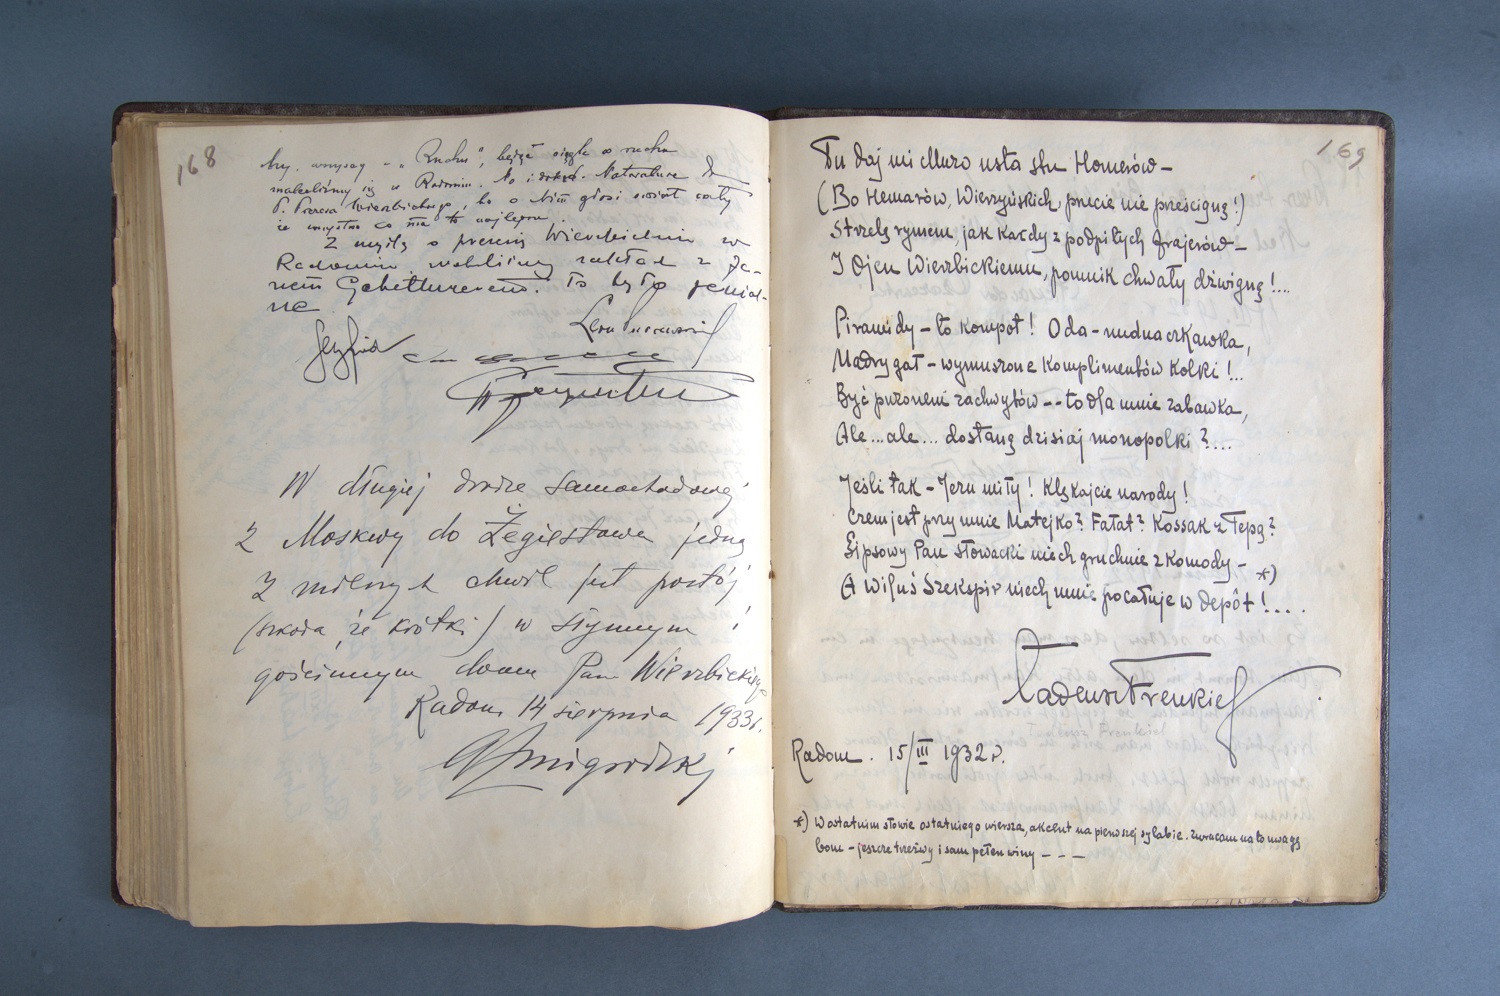 168
"Ruchu", będąc ciągle w ruchu
w Radomiu. No i
P. Prezesa Wierzbickiego, bo o Nim głosi świat cały
że wszystko co ma to najlepsze.
Z wizytą u prezesa Wierzbickiego w
Radomiu zrobiliśmy zakład z Ja-
nem Gebethnerem. To było genial-
ne
W długiej drodze samochodowej
z Moskwy do Żegiestowa jedną
z milszych chwil jest postój
(szkoda, że krótki) w słynnym i
gościnnym domu Pana Wierzbickiego
Radom, 14 sierpnia 1933 r.
169
Tu daj mi Muzo usta stu Homerów –
(Bo Hemarów, Wierzyńskich, przecie nie prześcignę!)
Strzelę rymem, jak każdy z podpitych frajerów –
I Ojcu Wierzbickiemu, pomnik chwały dźwignę!...
Piramidy – to kompot! Oda – nudna czkawka,
Madrygał – wymuszone komplimentów kolki!...
Być puzonem zachwytów -- to dla mnie zabawka,
Ale... ale... dostanę dzisiaj monopolki?....
Jeśli tak – Jezu miły! Klękajcie narody!
Czem jest przy mnie Matejko? Fałat? Kossak z Tepą?
Gipsowy Pan Słowacki niech gruchnie z komody –
A Wiluś Szekspir niech mnie pocałuje w depôt!.... *)
Tadeusz Frenkiel
Tadeusz Frenkiel
Radom. 15/III 1932 r.
*) W ostatnim słowie ostatniego wiersza, akcent na pierwszej sylabie. Zwracam na to uwagę
bom – jeszcze trzeźwy i sam pełen winy – – –